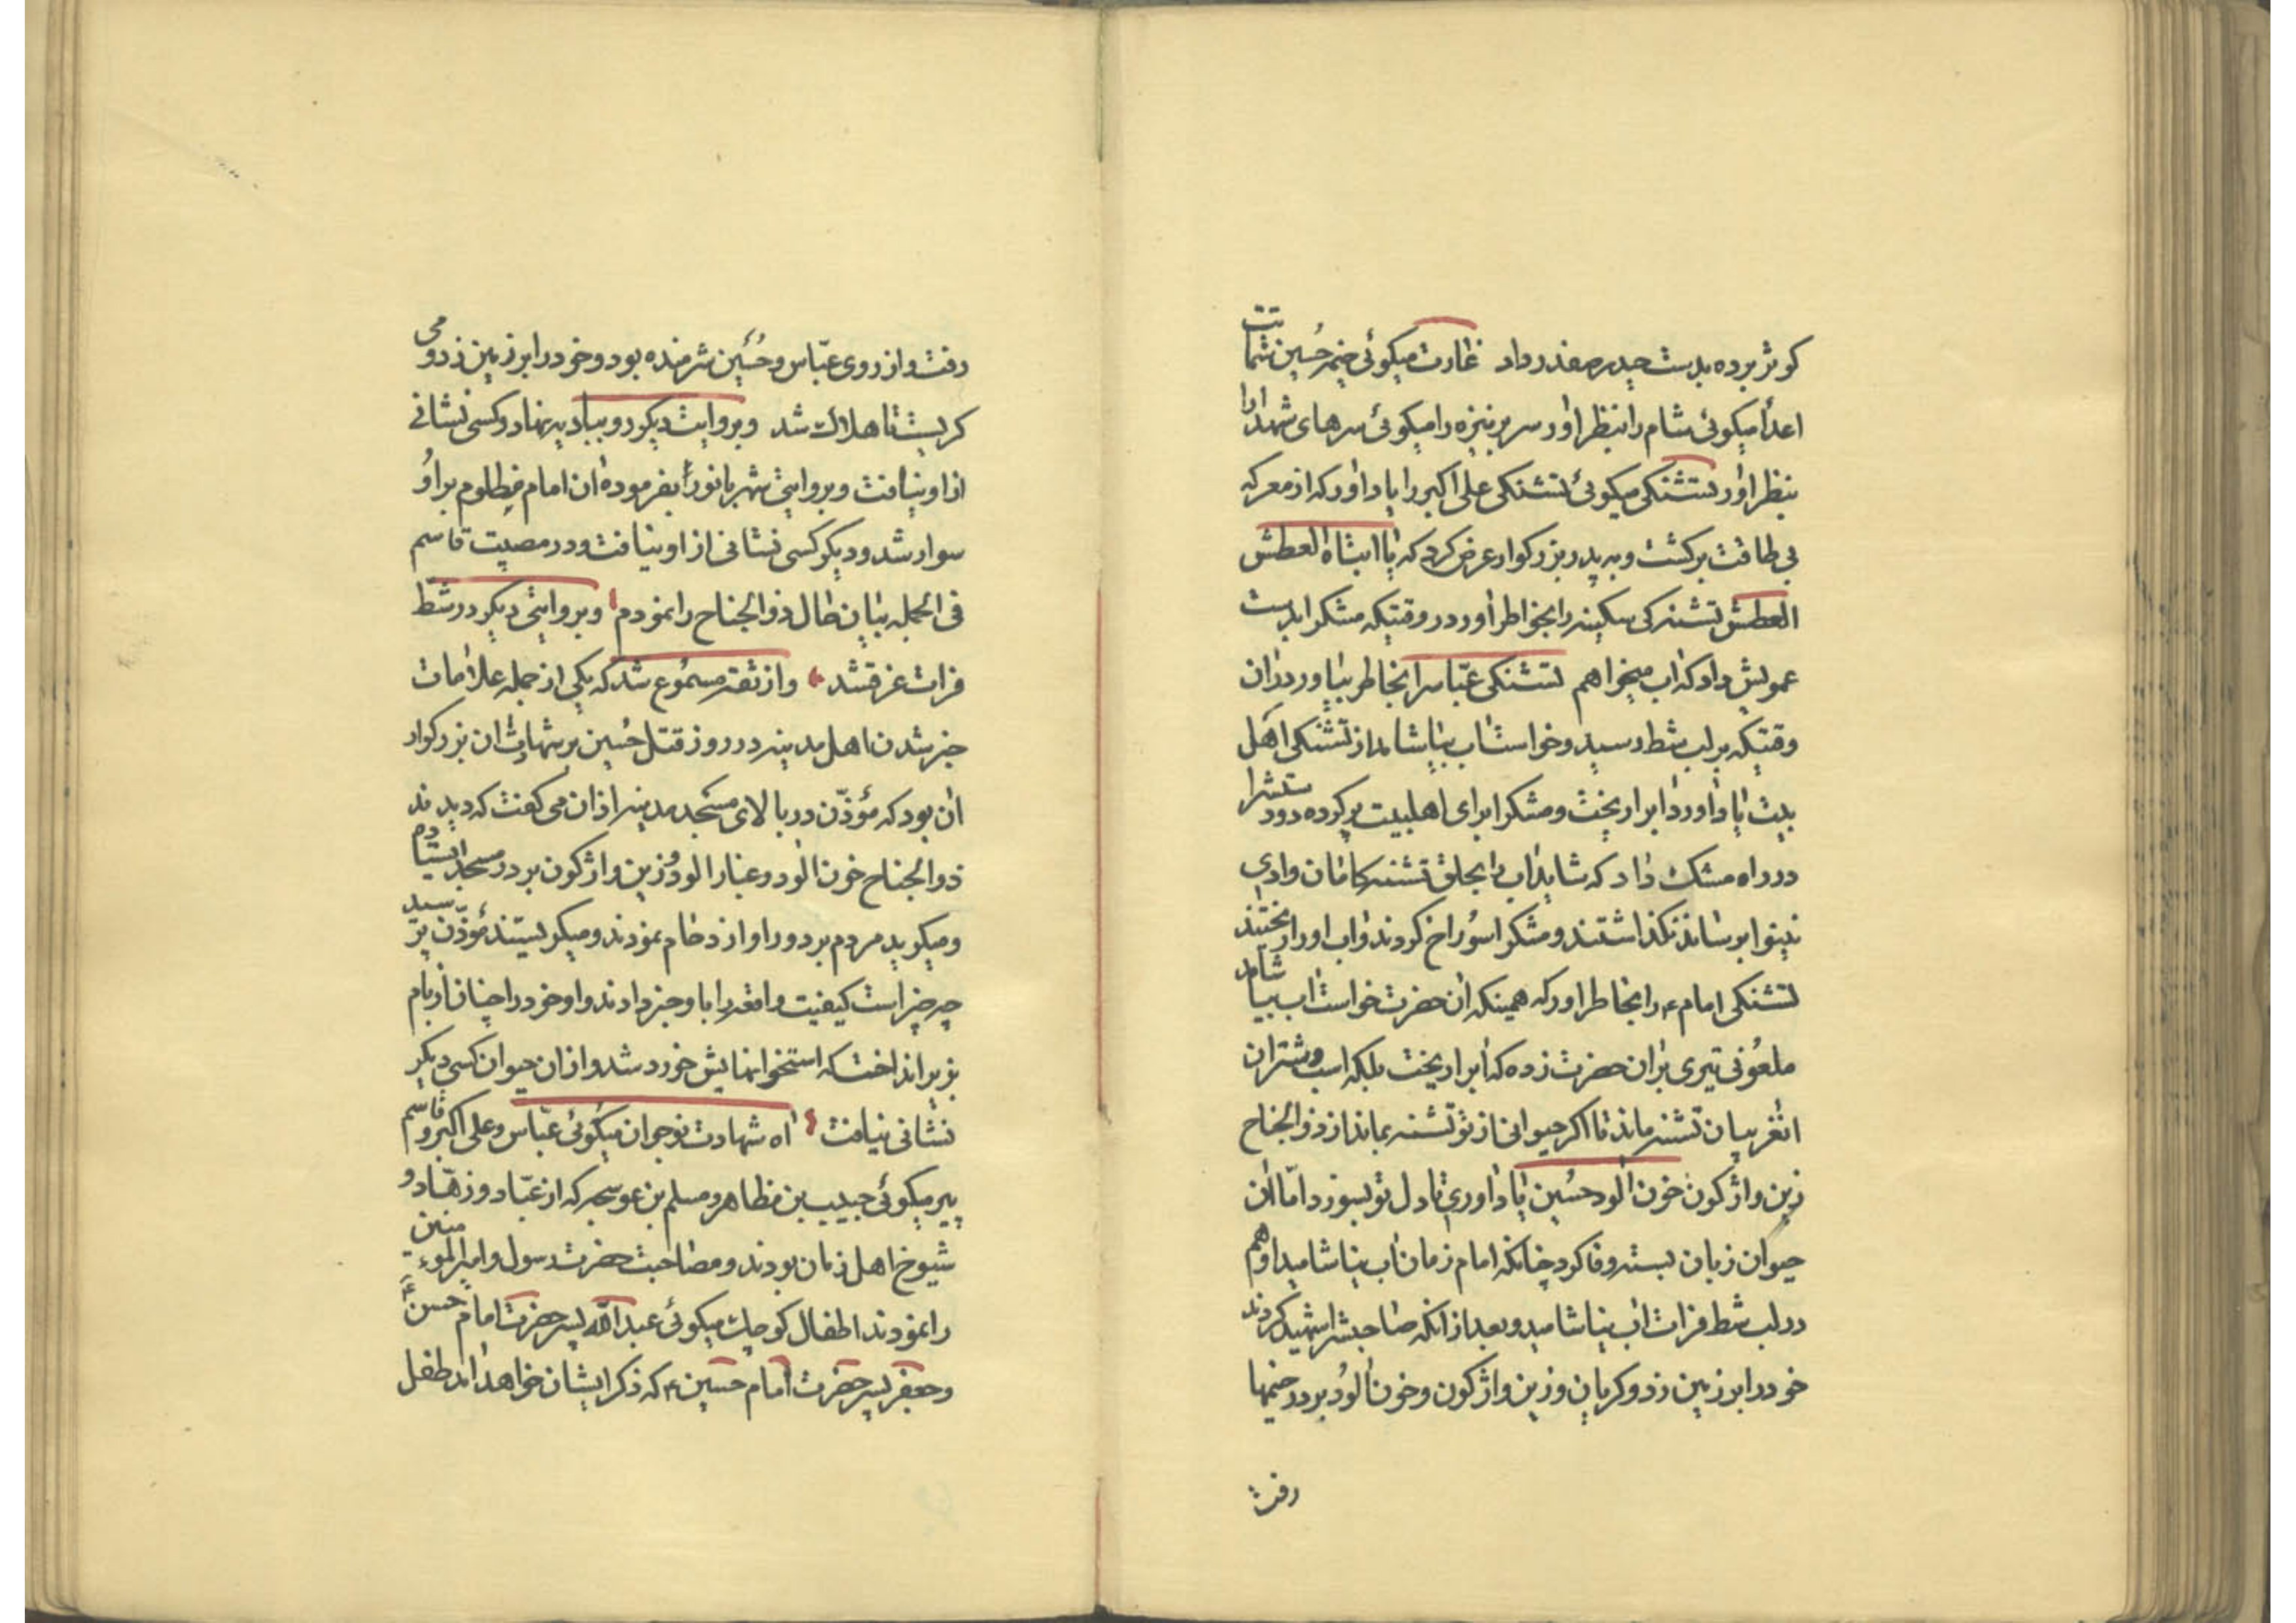 کوثر برده بدست حیدر صفدر داد غارت میکوئی خیمه حسین شماتت
اعدا میکوئی شام را بنظر اور سر بر نیزه را میکوئی سرهای شهدا را
بنظر اور تشنکی میکوئی تشنکی علی اکبر را یاد اور که از معرکه
بی طاقت برکشت و به پدر بزرکوار عرض کرد که یا ابتاه العطش
العطش تشنه کی سکینه را بخواطر اور در وقتیکه مشکرا بدست
عمویش داد که اب میخواهم تشنکی عباس را بخاطر بیاور در ان
وقتیکه بر لب شط رسید و خواست اب بیاشامد از تشنکی اهل
بیت یاد اورد ابرا ریخت و مشکرا برای اهلبیت پر کرده دود ستشرا
در راه مشک داد که شاید اب را بحلق تشنه کامان وادی
نینوا برساند نکذاشتند و مشکرا سوراخ کردند و اب او را ریختند
تشنکی امام ع را بخاطر اور که همینکه ان حضرت خواست اب بیاشامد
ملعونی تیری بر ان حضرت زده که ابرا ریخت بلکه اسب و شتران
انغریبان تشنه ماند تا اکر حیوانی از تو تشنه بماند از ذو الجناح
زین واژکون خون الود حسین یاد اوری تا دل تو بسوزد اما ان
حیوان زبان بسته وفا کرد چنانکه امام زمان اب نیاشامید او هم
در لب شط فرات اب نیاشامید و بعد از انکه صاحبش را شهید کردند
خود را بر زمین زد و کریان و زین واژکون و خون الود بر در خیمها
رفت
رفت و از روی عباس و حسین شرمنده بود و خود را بر زمین زد و می
کریست تا هلاک شد و بروایت دیکر رو ببادیه نهاد و کسی نشانی
از او نیافت و بروایتی شهربانو را بفرموده ان امام مظلوم بر او
سوار شد و دیکر کسی نشانی از او نیافت و در مصیبت قاسم
فی الجمله بیان حال ذو الجناح را نمودم و بروایتی دیکر در شط
فرات غرقشد و از ثقه مسموع شد که یکی از جمله علامات
خبر شدن اهل مدینه در روز قتل حسین بر شهادت ان بزرکوار
ان بود که مؤذن در بالای مسجد مدینه اذان می کفت که دیدند
ذو الجناح خون الود و غبار الود و زین واژکون بر در مسجد ایستادم
و میکرید مردم بر دور او ازدحام نمودند و میکریستند مؤذن پرسید
چه خبر است کیفیت واقعه را با و خبر دادند و او خود را چنان از بام
بزیر انداخت که استخوانهایش خورد شد و از ان حیوان کسی دیکر
نشانی نیافت اه شهادت نوجوان میکوئی عباس و علی اکبر و قاسم
پیر میکوئی حبیب بن مظاهر و مسلم بن عوسجه که از عباد و زهاد و
شیوخ اهل زمان بودند و مصاحبت حضرت رسول و امیر المؤمنین
را نمودند اطفال کوچک میکوئی عبد الله پسر حضرت امام حسن ع
و جعفر پسر حضرت امام حسین ع که ذکر ایشان خواهد امد طفل